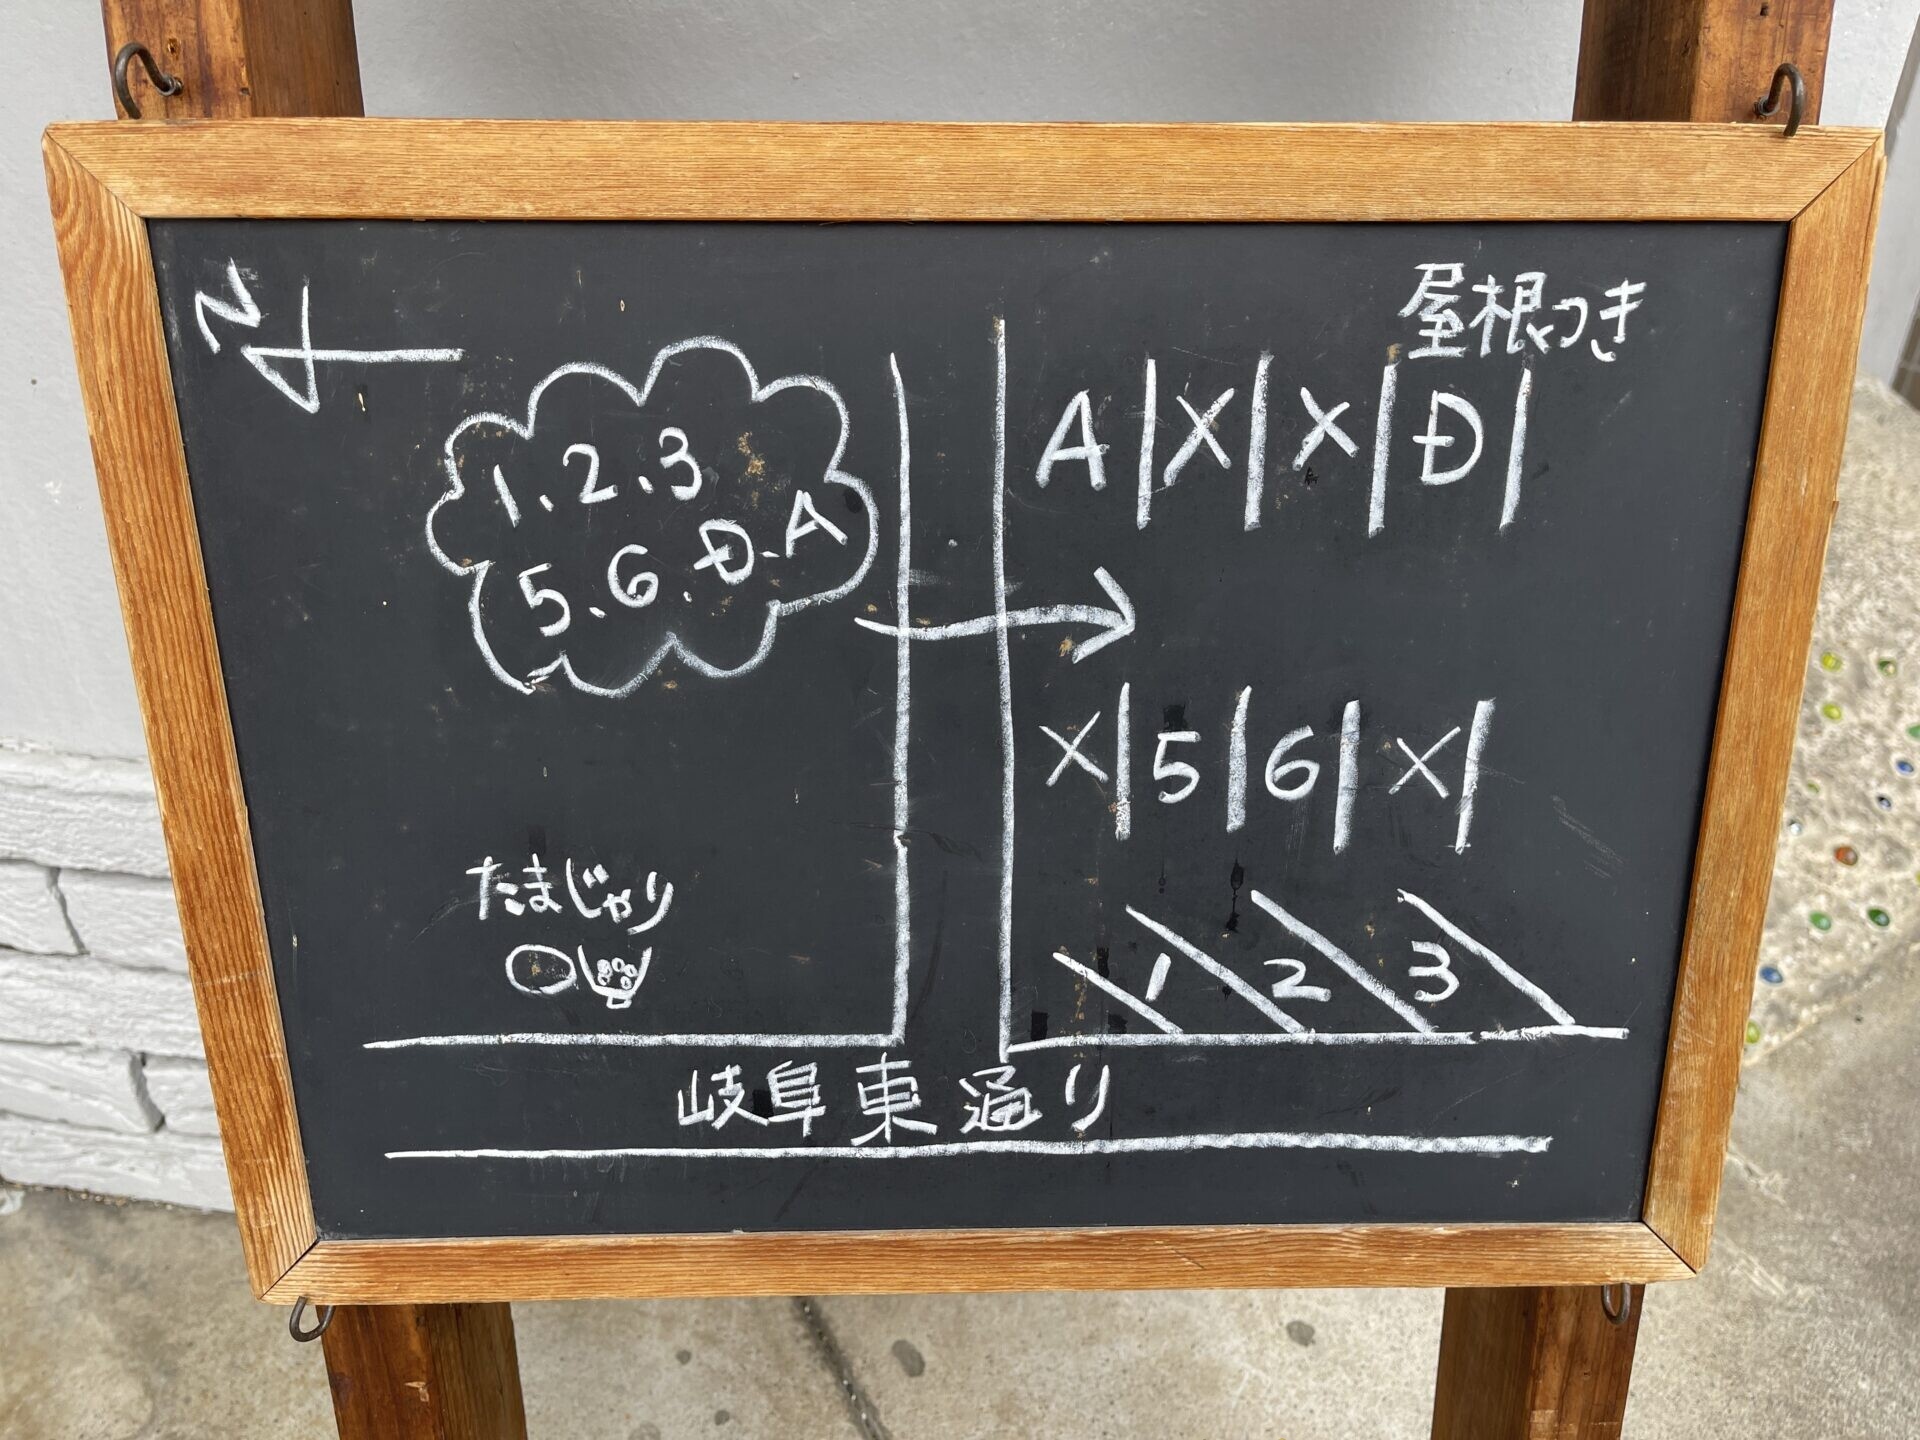 N
屋根つき
A X X D
1.2.3
5.6.D.A
X 5 6 X
たまじゃり
1 2 3
岐阜東通り